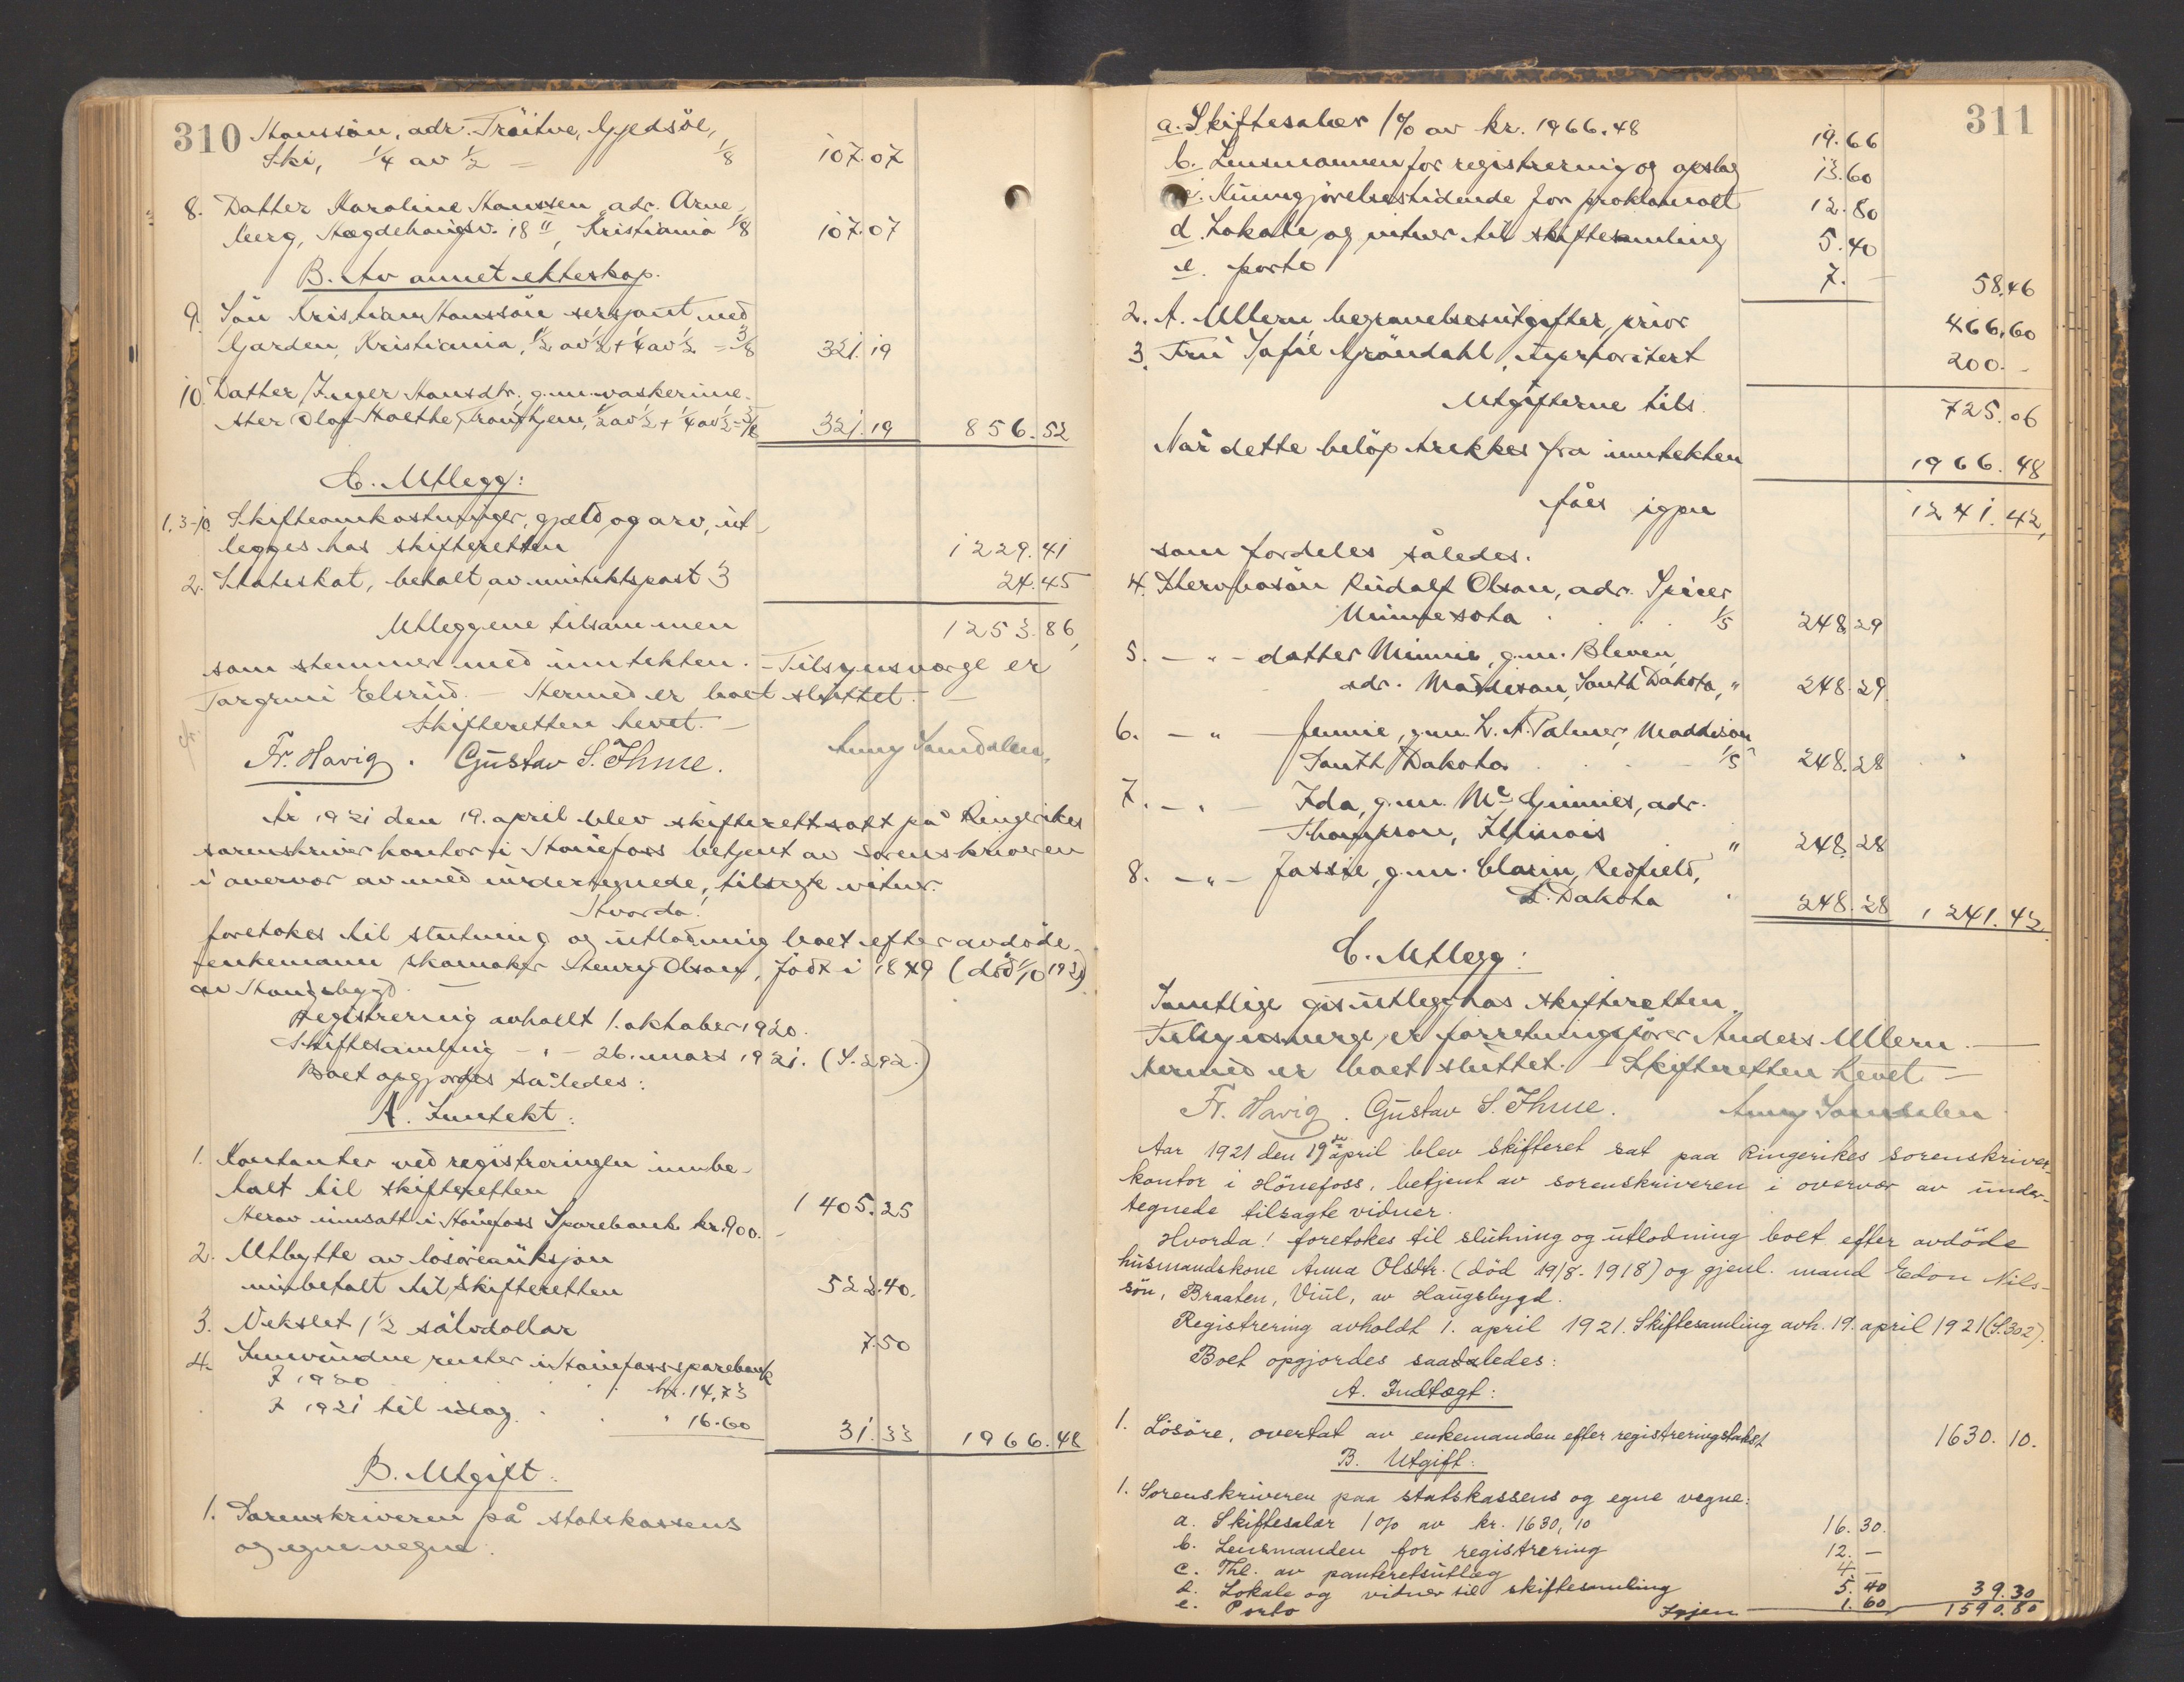 310
Hanssön, adr. Tröitve, Gjedsöe,
Ski, 1/4 av 1/2 = 1/8 107.07
8. Datter Karoline Hanssen, adr. Arne-
berg, Hægdehaugsv. 18 II, Kristiania 1/8 107.07
B. Av annet ekteskap.
9. Sön Kristian Hanssön sersjant ved
Garden, Kristiania, 1/2 av 1/2 + 1/4 av 1/2 = 3/8 321.19
10. Datter Inger Hansdtr., g.m. vaskerime-
ster Olaf Holthe, Trondhjem, 1/2 av 1/2 + 1/4 av 1/2 = 3/8 321.19 856.52
C. Utlegg:
1. 3-10. Skifteomkostninger, gjeld og arv, ut-
legges hos skifteretten 1229.41
2. Statsskat, betalt av inntektspost 3 24.45
Utleggene tilsammen 1253.86,
som stemmer med inntekten. - Tilsynsverge er
Torgrim Elsrud. - Hermed er boet sluttet. -
Skifteretten hevet. -
Fr. Havig. Gustav S. Ihme. Anny Sandalen.
År 1921 den 19. april blev skifterett satt på Ringerikes
sorenskriverkontor i Hönefoss betjent av sorenskriveren
i overvær av med undertegnede, tilsagte vitner.
Hvorda!
foretokes til slutning og utlodning boet efter avdöde
enkemann skomaker Henry Olson, födt i 1849 (död 1/10 1920)
av Haugsbygd. -
Registrering avholdt 1. oktober 1920.
Skiftesamling - " - 26. mars 1921. (S. 292.)
Boet opgjordes således:
A. Inntekt:
1. Kontanter ved registreringen innbe-
talt til skifteretten 1405.25
Herav innsatt i Hönefoss Sparebank kr. 900. -
2. Utbytte av lösöreauksjon
innbetalt til skifteretten 522.40.
3. Vekslet 1 1/2 sölvdollar 7.50
4. Innvundne renter i Hönefoss sparebank
I 1920 . . . kr. 14.73
I 1921 til idag . . " 16.60 31.33 1966.48
B. Utgift:
1. Sorenskriveren på statskassens
og egne vegne:
311
a. Skiftesalær 1% av kr. 1966.48 19.66
b. Lensmannen for registrering og opslag 13.60
c. Kunngjörelsestidende for proklamaet 12.80
d. Lokale og vitner til skiftesamling 5.40
e. porto 7. - 58.46
2. A. Ullern, begravelsesutgifter, prior 466.60
3. Fru Sofie Gröndahl, uprioritert 200. -
Utgifterne tils. 725.06
Når dette belöp trekkes fra inntekten 1966.48
fåes igjen 1241.42,
som fordeles således.
4. Stervbosön Rudolf Olson, adr. Spicer
Minnesota . . . 1/5 248.29
5. - " - datter Minnie, g.m. Bleven,
adr. Maddison, South Dakota, " 248.29
6. - " - Jennie, g.m. L. A. Palmer, Maddison
South Dakota . . . 1/5 248.28
7. - " - Ida, g.m. Mc Ginnies, adr.
Thompson, Illinois " 248.28
8. - " - Jossie, g.m. Clarin, Redfield,
S. Dakota " 248.28 1241.42.
C. Utlegg:
Samtlige gis utlegg hos skifteretten.
Tilsynsverge er forretningsförer Anders Ullern. -
Hermed er boet sluttet. - Skifteretten hevet -
Fr. Havig. Gustav S. Ihme. Anny Sandalen
Aar 1921 den 19de april blev skifteret sat paa Ringerikes sorenskriver-
kontor i Hönefoss, betjent av sorenskriveren i overvær av under-
tegnede tilsagte vidner.
Hvorda! foretokes til slutning og utlodning boet efter avdöde
husmandskone Anna Olsdtr. (död 19/8-1918) og gjenl. mand Edon Nils-
sön, Braaten, Viul, av Haugsbygd.
Registrering avholdt 1. april 1921. Skiftesamling avh. 19. april 1921 (S. 302).
Boet opgjordes saaledes:
A. Indtægt:
1. Lösöre, overtat av enkemanden efter registreringstakst 1630.10.
B. Utgift:
1. Sorenskriveren paa statskassens og egne vegne:
a. Skiftesalær 1% av kr. 1630,10 16.30.
b. Lensmanden for registrering 12. -
c. Thl. av panteretsutlæg 4. -
d. Lokale og vidner til skiftesamling 5.40
e. Porto 1.60 39.30
Igjen 1590.80